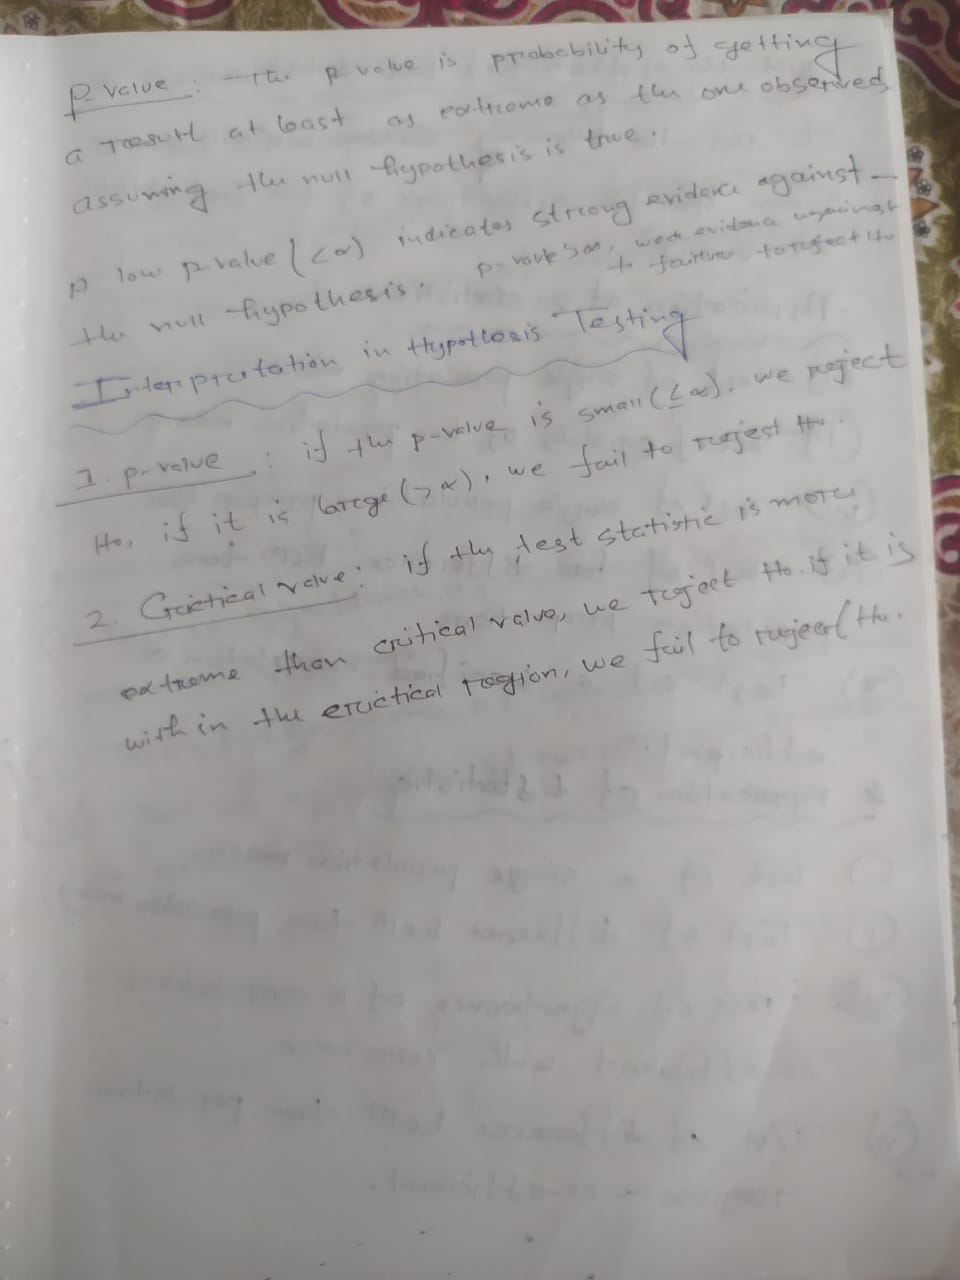 P value : The p value is probability of getting
a result at least as extreme as the one observed,
assuming the null hypothesis is true.
A low p value (<α) indicates strong evidence against
the null hypothesis.
p-value > α, weak evidence against
to failure to reject Ho
Interpretation in Hypothesis Testing
1. p-value : if the p-value is small (≤α), we reject
Ho, if it is large (>α), we fail to reject Ho.
2. Critical value : if the test statistic is more
extreme than critical value, we reject Ho. if it is
with in the critical region, we fail to reject Ho.